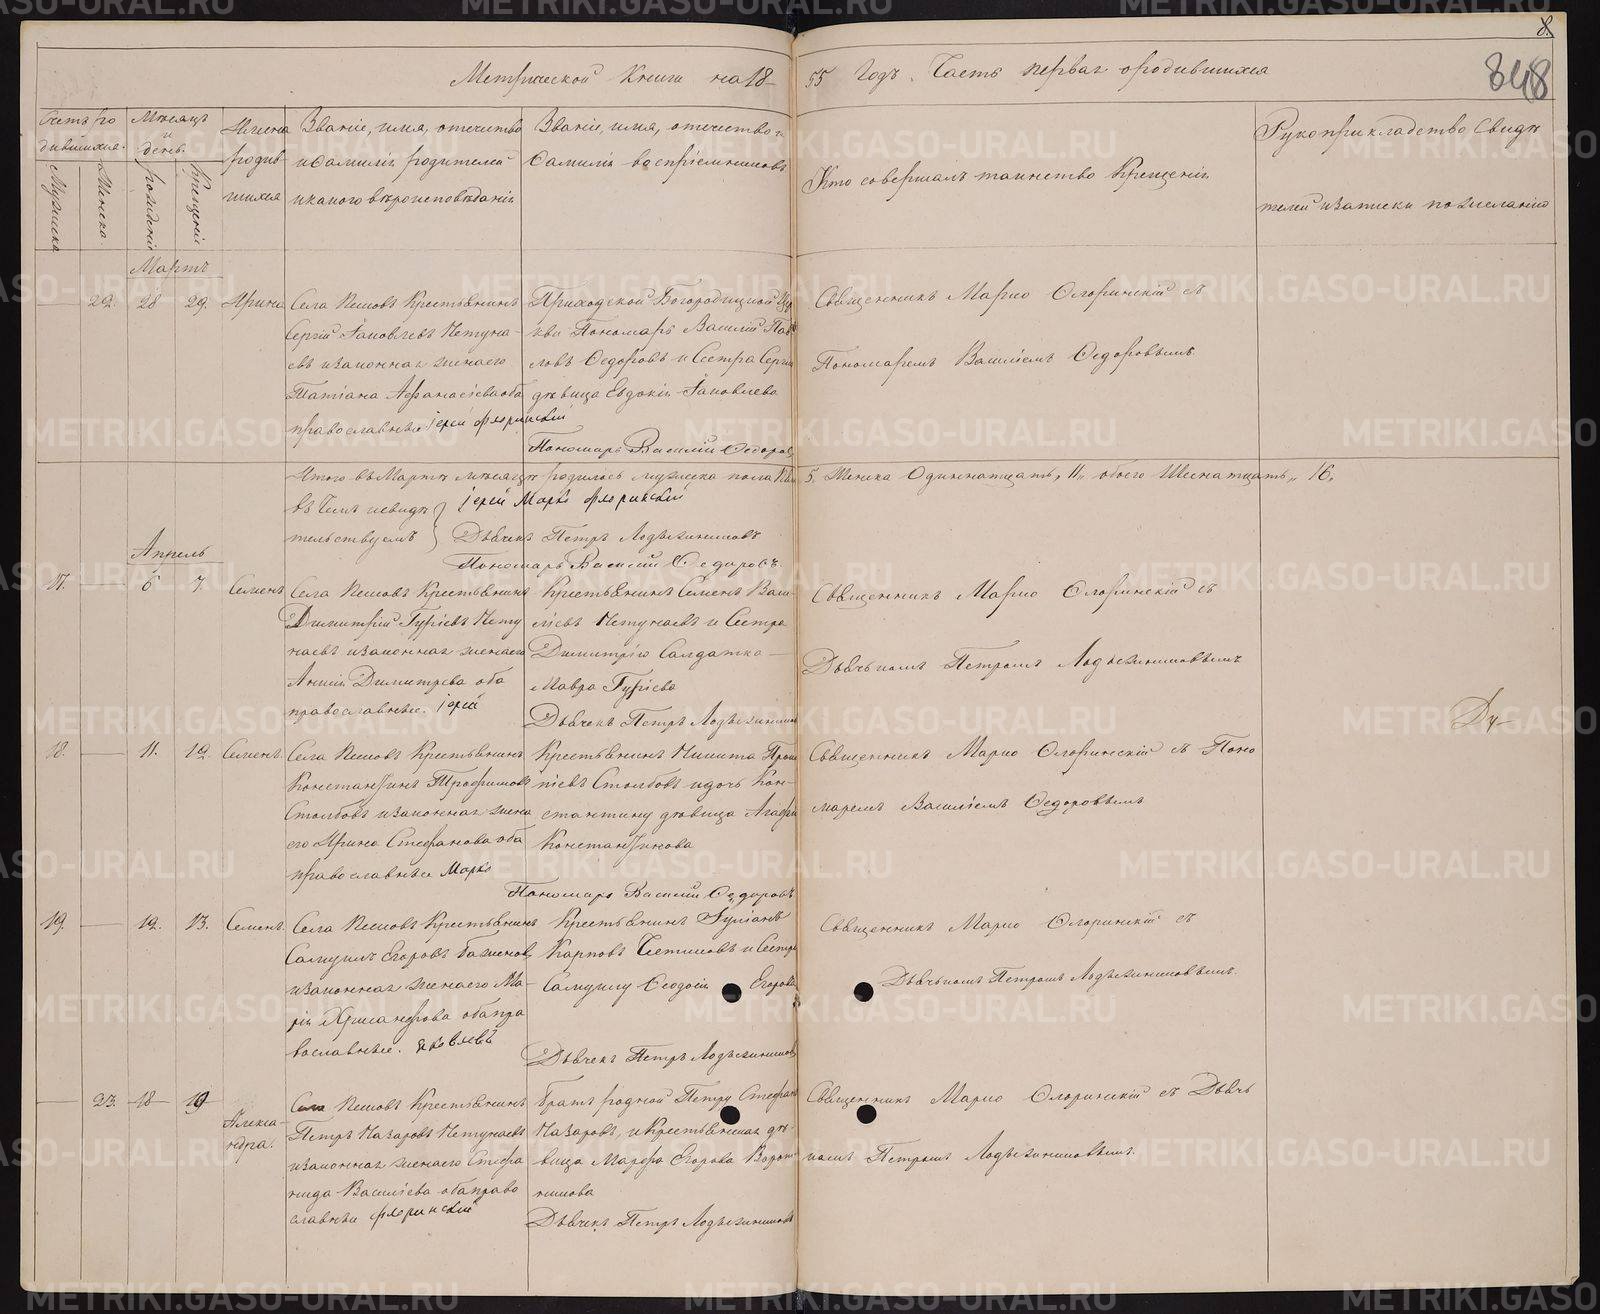 8.
848
Метрической Книги на 18 55 Годъ. Часть первая о родившихся
Счетъ родившихся.
Мужеска
Женска
Мѣсяцъ и день.
рожденія
Крещенія
Имена родившихся
Званіе, имя, отечество и Фамилія родителей и какого вѣроисповѣданія
Званіе, имя, отечество и Фамилія воспріемниковъ
Кто совершалъ таинство Крещенія
Рукоприкладство свидѣтелей и записки по желанію
Мартъ
29. 28 29. Ирина
Села Крестьянинъ
Сергій Іаковлевъ Петуна-
евъ и законная жена его
Татіана Афанасіева оба
православные іерей Флоринскій
Приходской Богородицкой Цер
кви Пономарь Василій Пав
ловъ Федоровъ и Сестра Сергія
дѣвица Евдокія Іаковлева
Пономарь Василій Федоровъ
Священникъ Марко Флоринскій съ
Пономаремъ Василіемъ Федоровымъ
Итого въ Мартѣ мѣсяцѣ родилось мужеска пола 5. Женска Одиннатцать „ 11 „ обоего Шеснатцать „ 16,
въ чемъ свидѣ іерей Марко Флоринскій
тельствуемъ Дьячекъ Петръ
Пономарь Василій Федоровъ.
Апрель
17. 6 7. Семенъ
Села Крестьянинъ
Димитрій Гуріевъ Пету
наевъ и законная жена его
Димитрева оба
православные. іерей
Крестьянинъ Семенъ Васи-
ліевъ Петунаевъ и Сестра
Димитрію Салдатка
Мавра Гуріева
Дьячекъ Петръ
Священникъ Марко Флоринскій съ
Дьячькомъ Петромъ
Ду-
18. 11. 12. Семенъ.
Села Крестьянинъ
Константинъ Трофимовъ
Столбовъ и законная жена
его Ирина Стефанова оба
православные Марко
Крестьянинъ Никита
Столбовъ и дочь Кон-
стантину дѣвица Агафія
Константинова
Пономарь Василій Федоровъ
Священникъ Марко Флоринскій съ Поно
маремъ Василіемъ Федоровымъ
19. 12. 13. Семенъ.
Села Крестьянинъ
Самуилъ Егоровъ
и законная жена его Ма-
рія Хрисанфова оба пра
вославные. Яковлевъ
Крестьянинъ Іуліанъ
Карповъ и Сестра
Самуилу Феодосія Егорова
Дьячекъ Петръ
Священникъ Марко Флоринскій съ
Дьячькомъ Петромъ
23. 18 19 Алекса-
ндра.
Села Крестьянинъ
Петръ Назаровъ Петунаевъ
и законная жена его Стефа
нида Василіева оба право
славные Флоринскій
Братъ родной Петру Стефанъ
Назаровъ, и Крестьянская дѣ-
вица Марфа Егорова
Дьячекъ Петръ
Священникъ Марко Флоринскій съ Дьячь
комъ Петромъ
METRIKI.GASO-URAL.RU